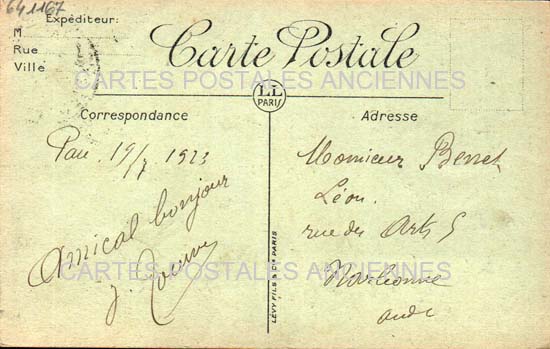 641167
Expéditeur:
M
Rue
Ville
Carte Postale
CARTES POSTALES ANCIENNES
LL
PARIS
Correspondance
Adresse
Pau 19/7 1923
Amical bonjour
J.
Monsieur
Léon
rue des Arts 5
Narbonne
aude
CARTES POSTALES ANCIENNES
LÉVY FILS & Cie PARIS